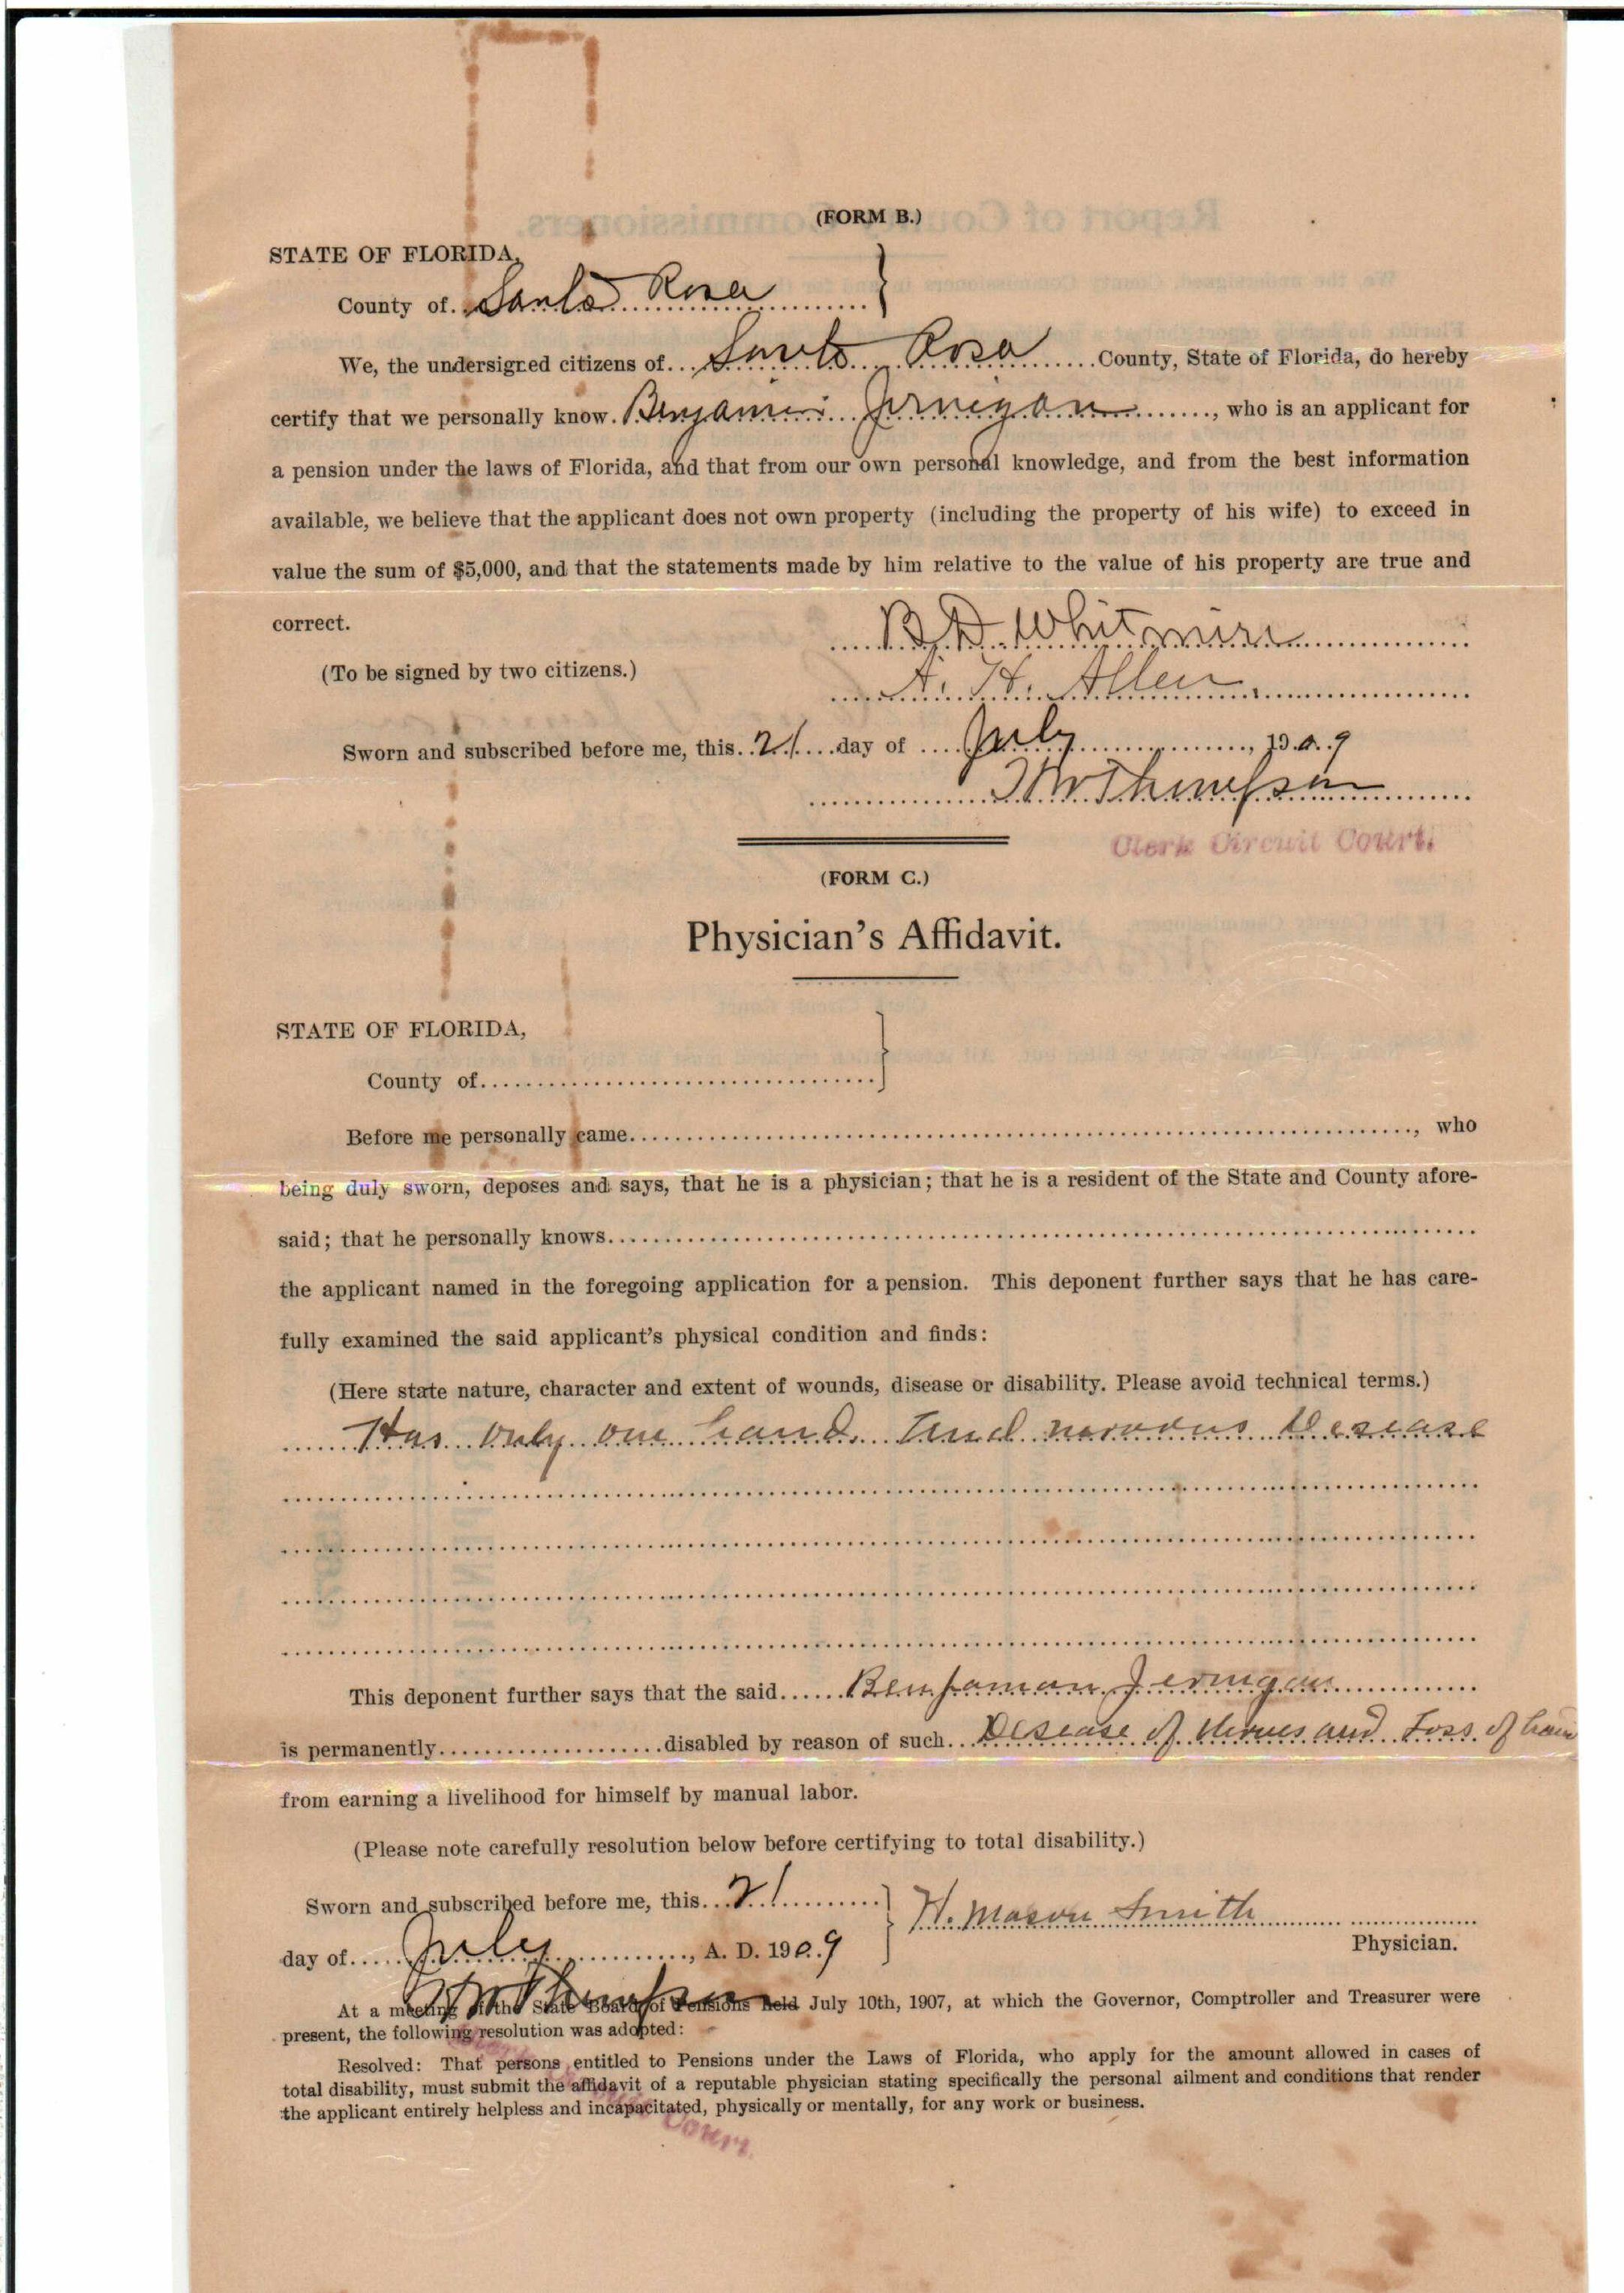 (FORM B.)
STATE OF FLORIDA,
County of Santa Rosa
We, the undersigned citizens of Santa Rosa County, State of Florida, do hereby
certify that we personally know Benjamin Jernigan, who is an applicant for
a pension under the laws of Florida, and that from our own personal knowledge, and from the best information
available, we believe that the applicant does not own property (including the property of his wife) to exceed in
value the sum of $5,000, and that the statements made by him relative to the value of his property are true and
correct.
B D Whitmire
(To be signed by two citizens.)
A. H. Allen
Sworn and subscribed before me, this 21 day of July, 1909
Thompson
Clerk Circuit Court.
(FORM C.)
Physician's Affidavit.
STATE OF FLORIDA,
County of
Before me personally came, who
being duly sworn, deposes and says, that he is a physician; that he is a resident of the State and County afore-
said; that he personally knows
the applicant named in the foregoing application for a pension. This deponent further says that he has care-
fully examined the said applicant's physical condition and finds:
(Here state nature, character and extent of wounds, disease or disability. Please avoid technical terms.)
Has only one hand. And nervous Desease
This deponent further says that the said Benjaman Jernigan
is permanently disabled by reason of such Desease of Nerves and Loss of
from earning a livelihood for himself by manual labor.
(Please note carefully resolution below before certifying to total disability.)
Sworn and subscribed before me, this 21
H. Mason Smith
day of July, A. D. 1909
Physician.
Thompson
At a meeting of the State Board of Pensions held July 10th, 1907, at which the Governor, Comptroller and Treasurer were
present, the following resolution was adopted:
Resolved: That persons entitled to Pensions under the Laws of Florida, who apply for the amount allowed in cases of
total disability, must submit the affidavit of a reputable physician stating specifically the personal ailment and conditions that render
the applicant entirely helpless and incapacitated, physically or mentally, for any work or business.
Court.